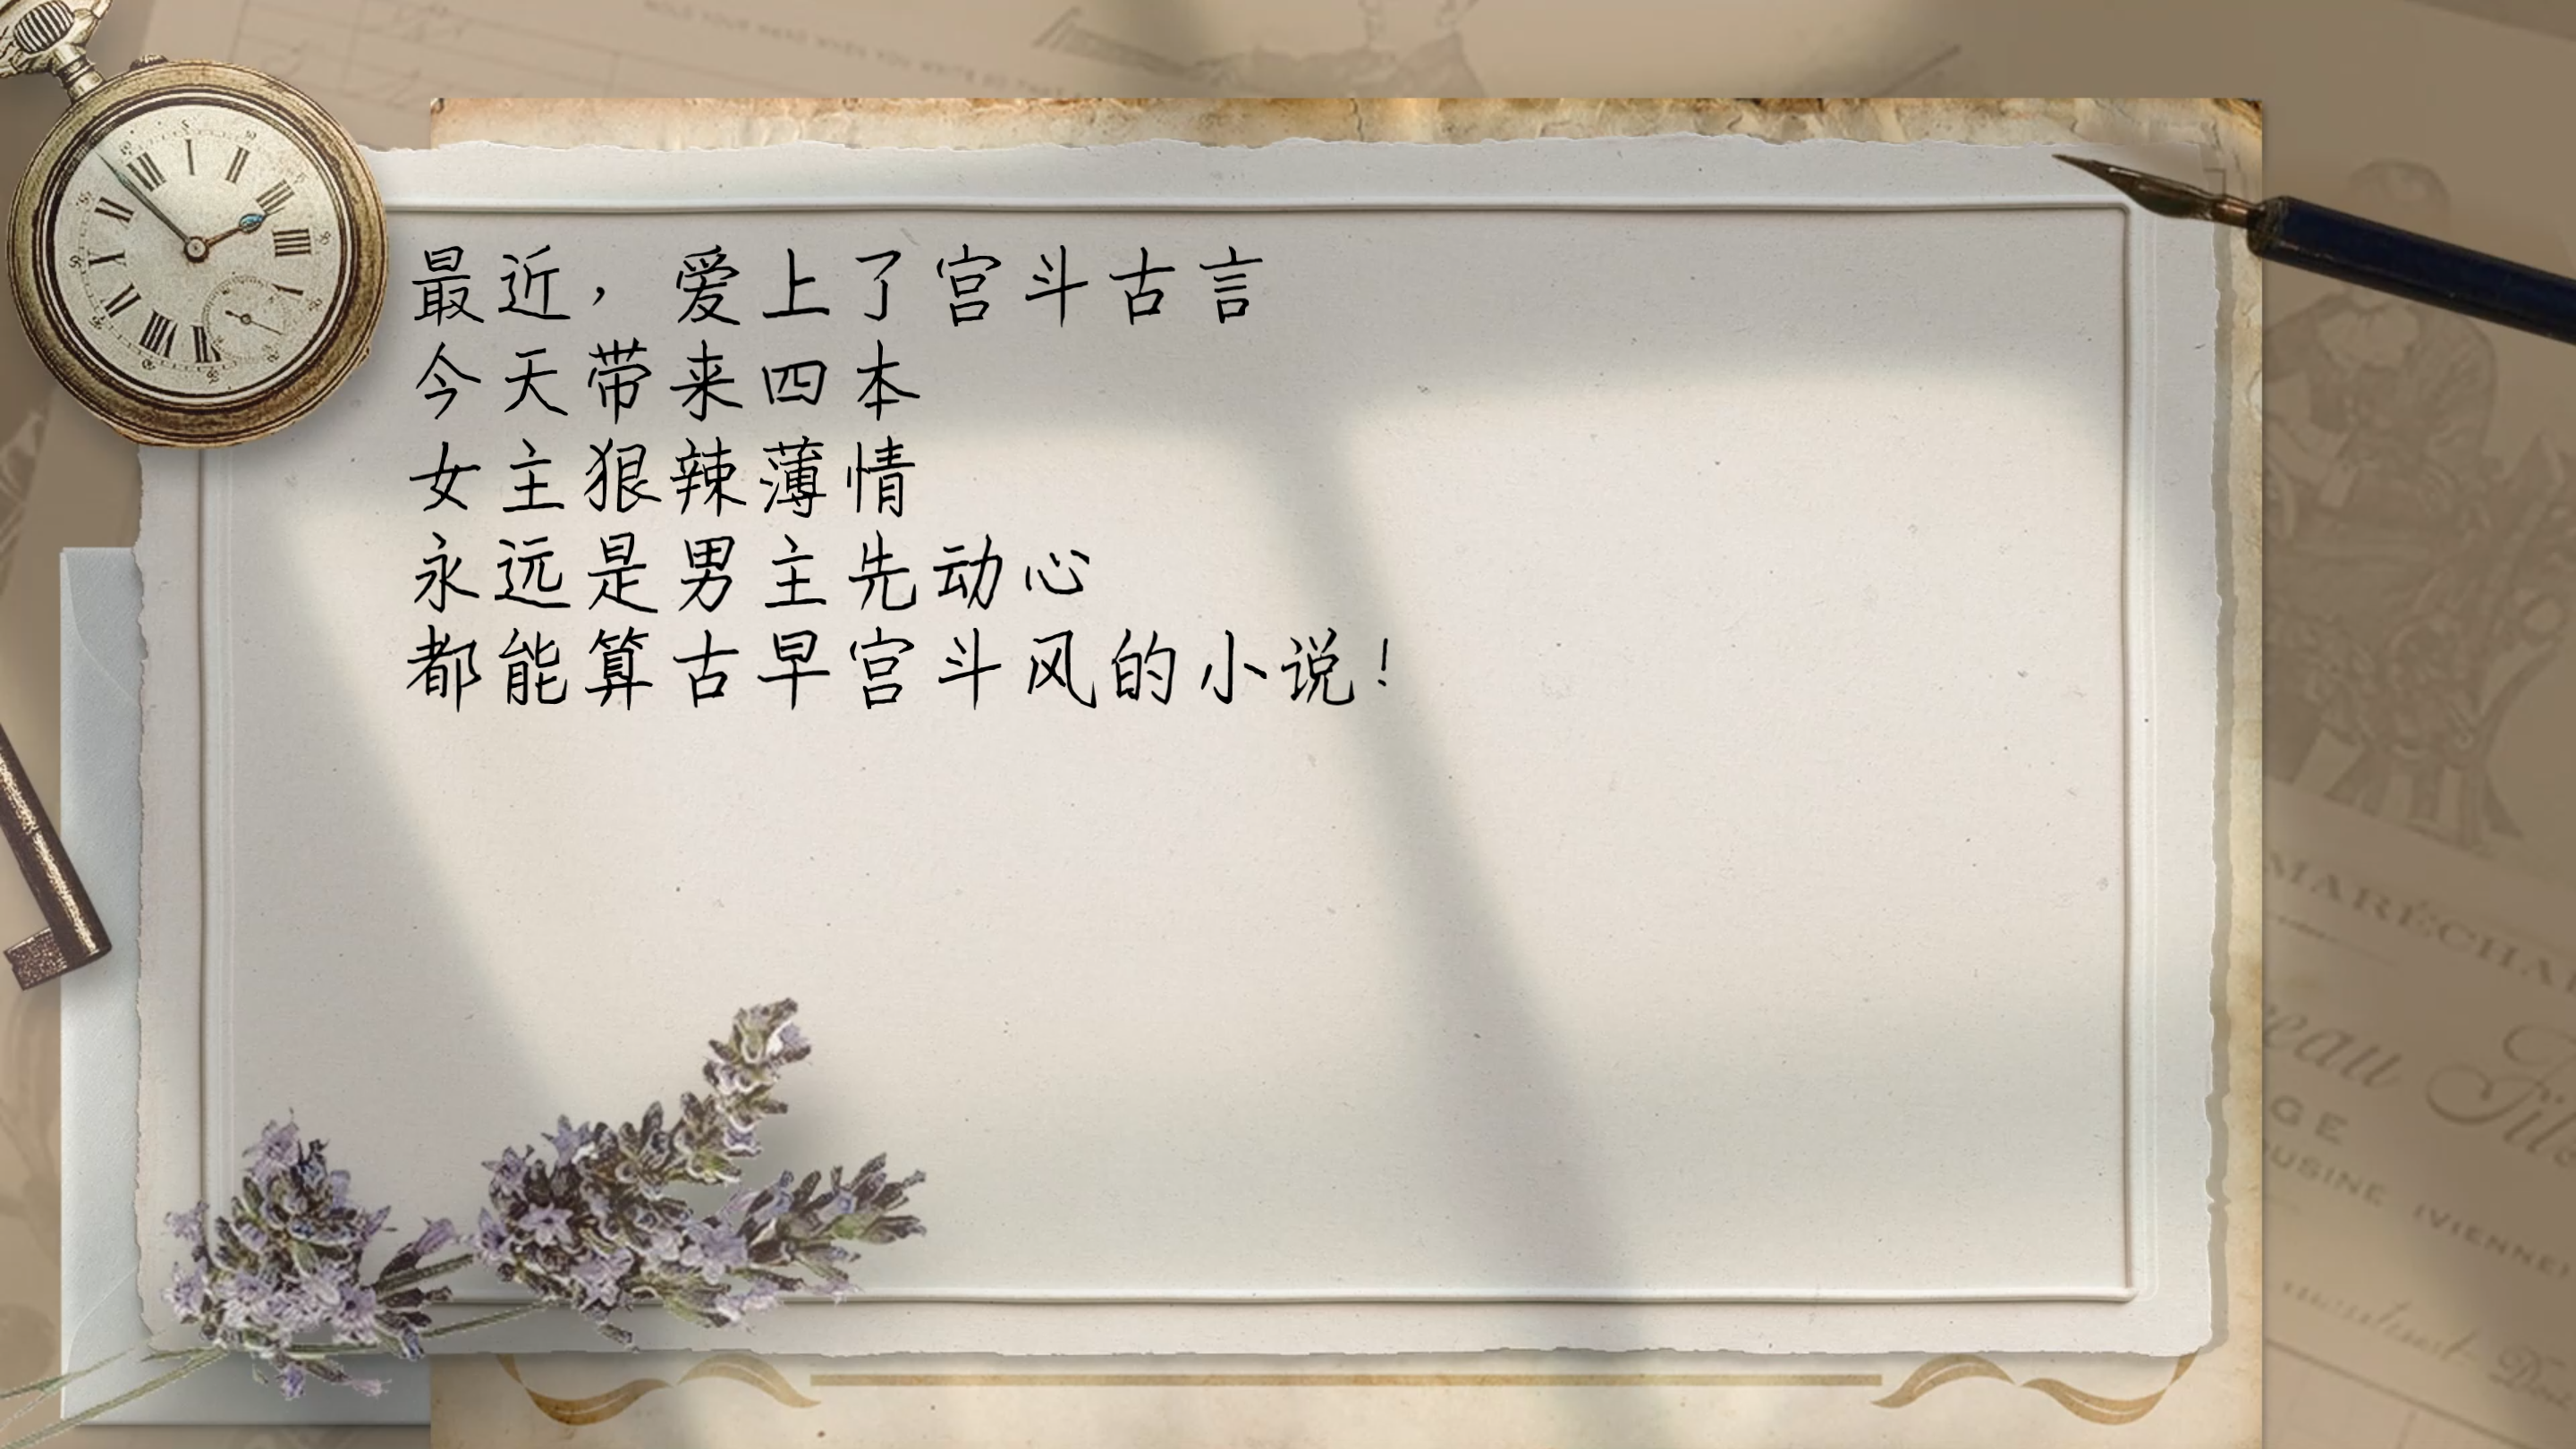 最近，爱上了宫斗古言
今天带来四本
女主狠辣薄情
永远是男主先动心
都能算古早宫斗风的小说！
MARECHA
eau Fil
GE
OUSINE (VIENNE)